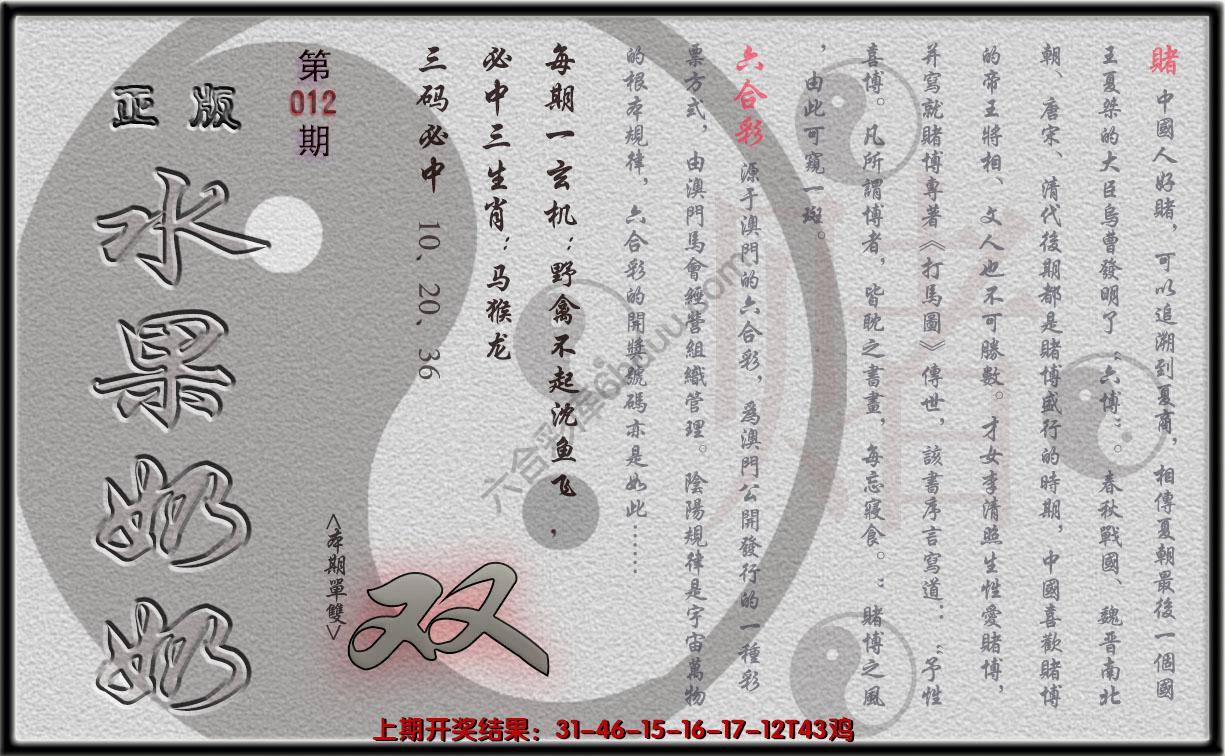 賭 中國人好賭，可以追溯到夏商，相傳夏朝最後一個國
王夏桀的大臣烏曹發明了“六博”。春秋戰國、魏晋南北
朝、唐宋、清代後期都是賭博盛行的時期，中國喜歡賭博
的帝王將相、文人也不可勝數。才女李清照生性愛賭博，
并寫就賭博專著《打馬圖》傳世，該書序言寫道：“予性
喜博。凡所謂博者，皆耽之書畫，每忘寢食。：賭博之風
，由此可窺一斑。
六合彩 源于澳門的六合彩，爲澳門公開發行的一種彩
票方式，由澳門馬會經營組織管理。陰陽規律是宇宙萬物
的根本規律，六合彩的開獎號碼亦是如此……
每期一玄机：野禽不起沈鱼飞，
必中三生肖：马猴龙
三码必中 10、20、36
第
012
期
正版
水果奶奶
<本期單雙>
双
上期开奖结果：31-46-15-16-17-12T43鸡
賭